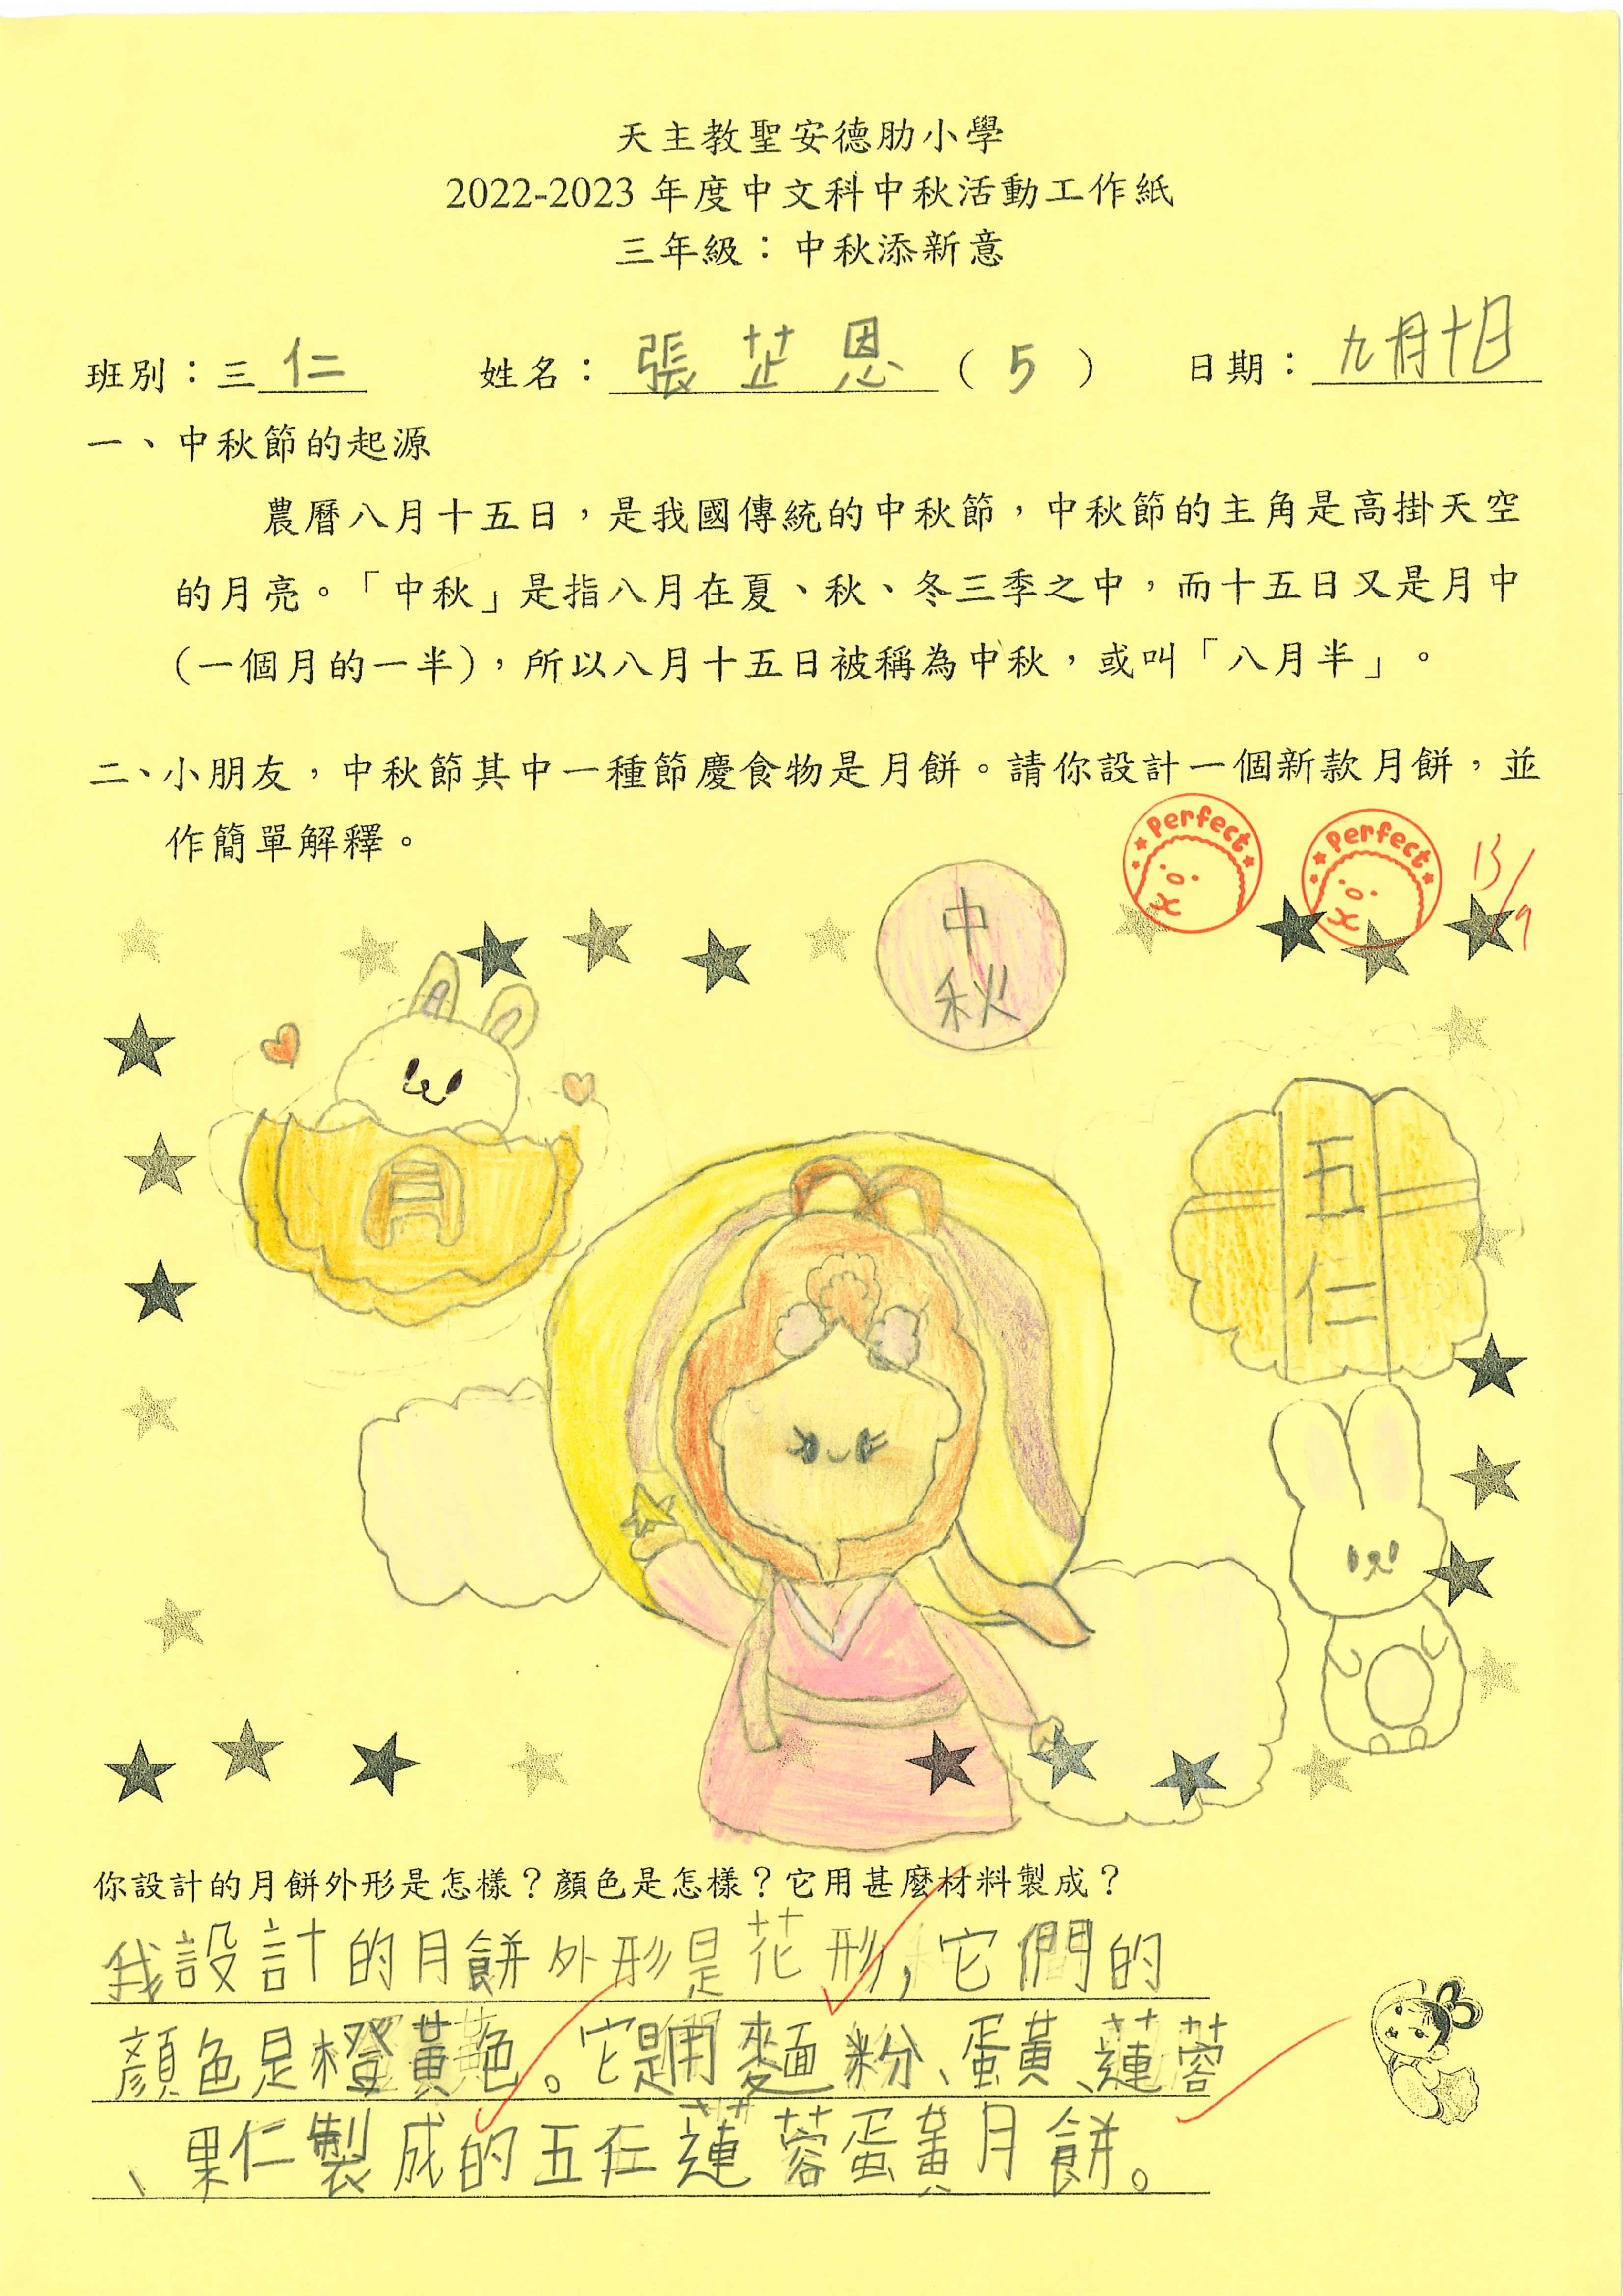 天主教聖安德肋小學
2022-2023 年度中文科中秋活動工作紙
三年級：中秋添新意
班別：三 仁 姓名：張芷恩（5） 日期：九月十日
一、中秋節的起源
農曆八月十五日，是我國傳統的中秋節，中秋節的主角是高掛天空
的月亮。「中秋」是指八月在夏、秋、冬三季之中，而十五日又是月中
(一個月的一半)，所以八月十五日被稱為中秋，或叫「八月半」。
二、小朋友，中秋節其中一種節慶食物是月餅。請你設計一個新款月餅，並
作簡單解釋。
Perfect
Perfect
13/9
中
秋
月
五
仁
你設計的月餅外形是怎樣？顏色是怎樣？它用甚麼材料製成？
我設計的月餅外形是花形，它們的
顏色是橙黃色。它是用麵粉、蛋黃、蓮蓉
、果仁製成的五仁蓮蓉蛋黃月餅。